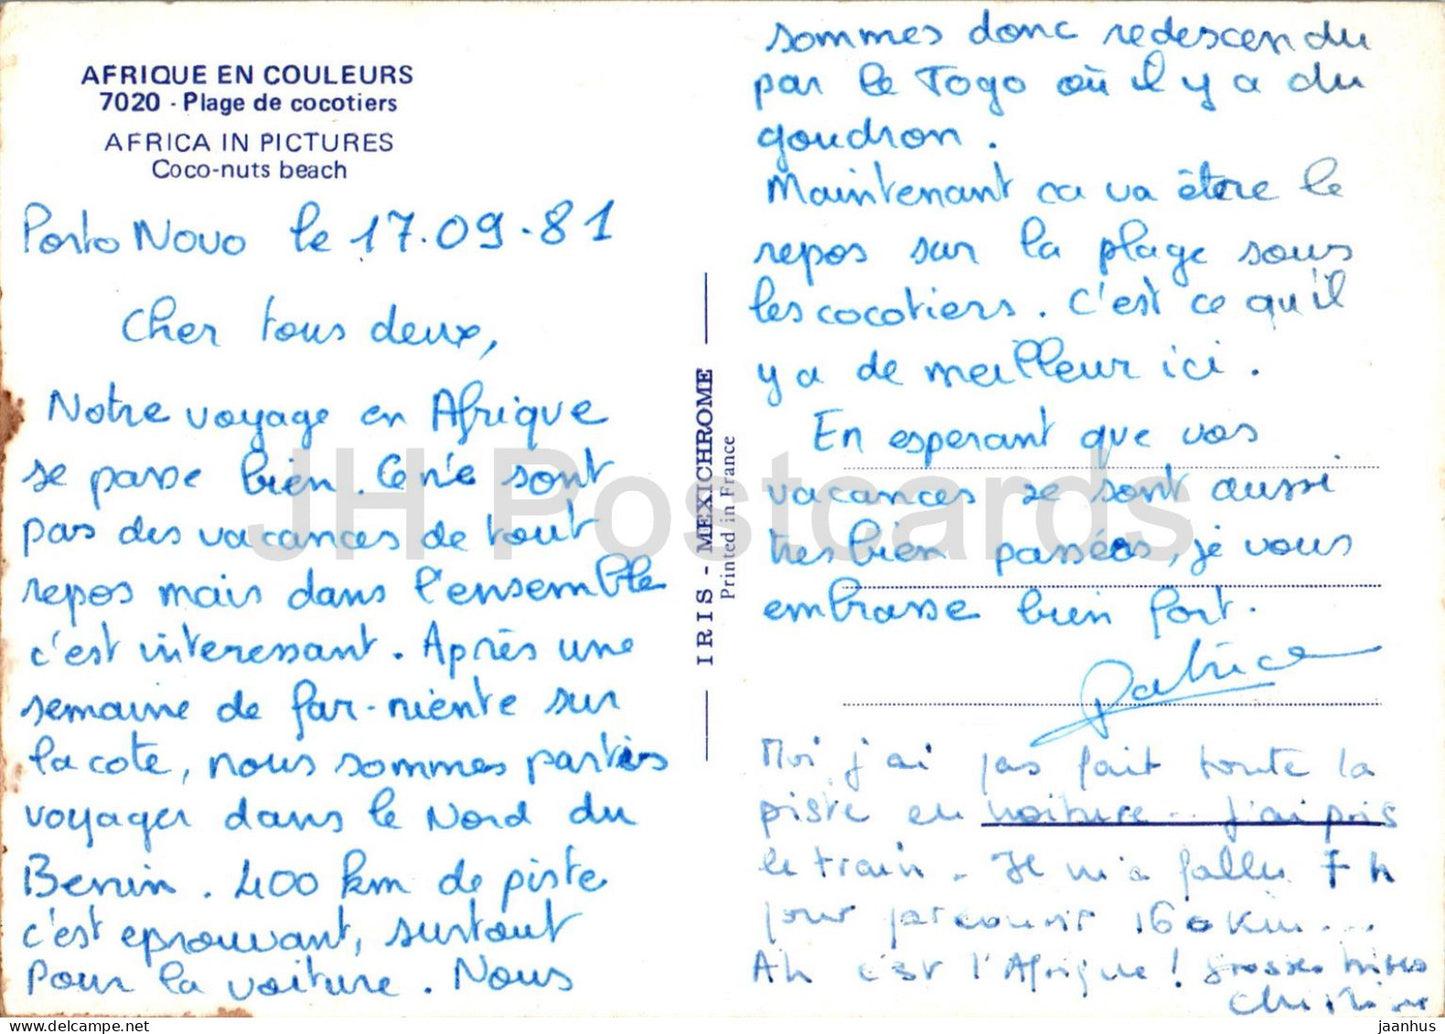 AFRIQUE EN COULEURS
7020 - Plage de cocotiers
AFRICA IN PICTURES
Coco-nuts beach
Porto Novo le 17.09.81
Cher tous deux,
Notre voyage en Afrique
se passe bien. Ce n'e sont
pas des vacances de tout
repos mais dans l'ensemble
c'est interessant. Après une
semaine de far-niente sur
la cote, nous sommes partis
voyager dans le Nord du
Benin. 400 km de piste
c'est eprouvant, surtout
Pour la voiture. Nous
IRIS - MEXICHROME
Printed in France
sommes donc redescendu
par le Togo où il y a du
goudron.
Maintenant ca va être le
repos sur la plage sous
les cocotiers. C'est ce qu'il
y a de meilleur ici.
En esperant que vos
vacances se sont aussi
tres bien passées, je vous
embrasse bien fort.
Patrice
Moi j'ai pas fait toute la
piste en voiture... J'ai pris
le train. Il m'a fallu 7 h
pour parcourir 160 km...
Ah c'est l'Afrique ! Grosses bises
Christine
JH Postcards
jaanhus — https://jhpostcards.com